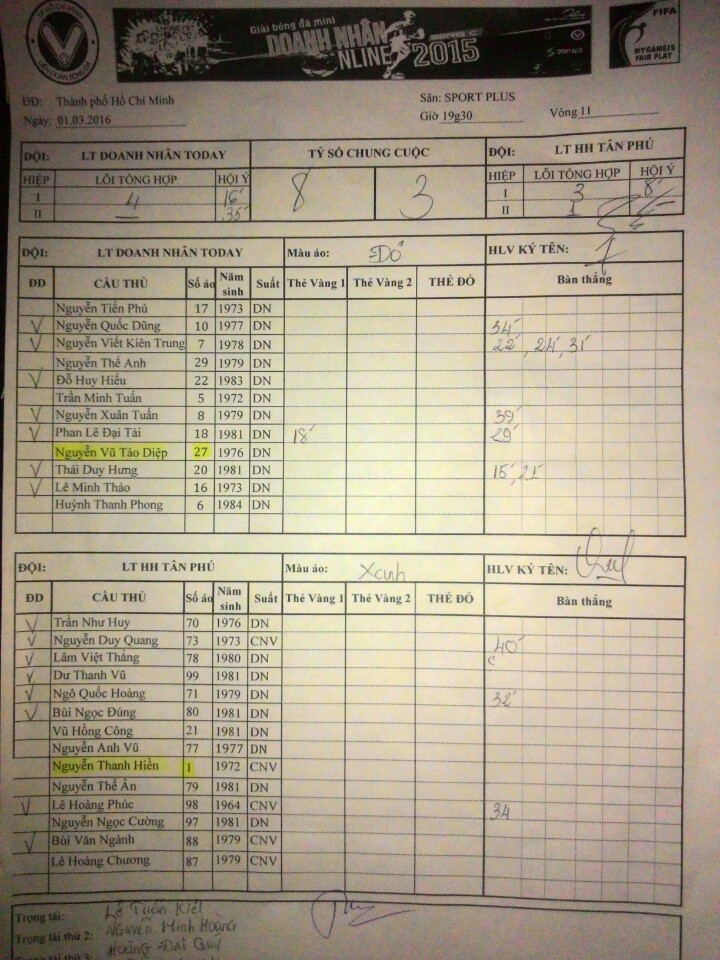 TP HỒ CHÍ MINH
LIÊN ĐOÀN BÓNG ĐÁ
Giải bóng đá mini
DOANH NHÂN
ONLINE 2015
SERIE C
SPORT PLUS
FIFA
MY GAME IS
FAIR PLAY
ĐĐ: Thành phố Hồ Chí Minh Sân: SPORT PLUS
Ngày: 01.03.2016 Giờ 19g30 Vòng 11
ĐỘI: LT DOANH NHÂN TODAY TỶ SỐ CHUNG CUỘC ĐỘI: LT HH TÂN PHÚ
HIỆP LỖI TỔNG HỢP HỘI Ý 8 3 HIỆP LỖI TỔNG HỢP HỘI Ý
I 4 16' I 3 8'
II 35' II 1
ĐỘI: LT DOANH NHÂN TODAY Màu áo: Đỏ HLV KÝ TÊN:
ĐD CẦU THỦ Số áo Năm sinh Suất Thẻ Vàng 1 Thẻ Vàng 2 THẺ ĐỎ Bàn thắng
Nguyễn Tiến Phú 17 1973 DN
V Nguyễn Quốc Dũng 10 1977 DN 34'
V Nguyễn Viết Kiên Trung 7 1978 DN 22', 24', 31'
Nguyễn Thế Anh 29 1979 DN
V Đỗ Huy Hiếu 22 1983 DN
Trần Minh Tuấn 5 1972 DN
V Nguyễn Xuân Tuấn 8 1979 DN 39'
V Phan Lê Đại Tài 18 1981 DN 18' 29'
Nguyễn Vũ Táo Diệp 27 1976 DN
V Thái Duy Hưng 20 1981 DN 15', 21'
V Lê Minh Thảo 16 1973 DN
Huỳnh Thanh Phong 6 1984 DN
ĐỘI: LT HH TÂN PHÚ Màu áo: Xanh HLV KÝ TÊN:
ĐD CẦU THỦ Số áo Năm sinh Suất Thẻ Vàng 1 Thẻ Vàng 2 THẺ ĐỎ Bàn thắng
V Trần Như Huy 70 1976 DN
V Nguyễn Duy Quang 73 1973 CNV 40'
V Lâm Việt Thắng 78 1980 DN
V Dư Thanh Vũ 99 1981 DN
V Ngô Quốc Hoàng 71 1979 DN 32'
V Bùi Ngọc Đúng 80 1981 DN
Vũ Hồng Công 21 1981 DN
Nguyễn Anh Vũ 77 1977 DN
Nguyễn Thanh Hiền 1 1972 CNV
Nguyễn Thế Ân 79 1981 DN
V Lê Hoàng Phúc 98 1964 CNV 34
Nguyễn Ngọc Cường 97 1981 DN
V Bùi Văn Ngành 88 1979 CNV
Lê Hoàng Chương 87 1979 CNV
Trọng tài: Lê Tuấn Kiệt
Trọng tài thứ 2: Nguyễn Minh Hoàng
Trọng tài thứ 3: Hoàng Đạt Quý